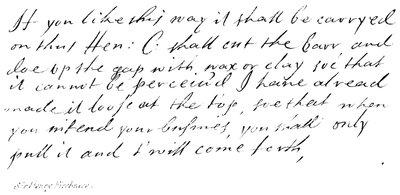 If you like this way it shall be carryed
on thus Hen: C: shall cut the barr and
doe up the gap with wax or clay soe that
it cannot be perceiud I haue alread
made it loose at the top, soe that when
you intend your busines, you shall only
pull it and t'will come forth,
Sir Henry Firebrace.